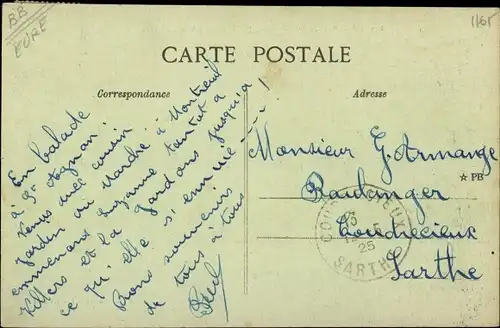 BB
EURE
1165
CARTE POSTALE
Correspondance
Adresse
En balade
à St Aignan.
Venus avec cousin
Jardin au Marché à Montreuil
emmenons Suzanne tantôt à
Villers et la gardons jusqu'à
ce qu'elle s'ennuie ---- !
Bons souvenirs
de tous à tous
Monsieur G. Armange
Boulanger
Coudrecieux
Sarthe
☆ PB
COUDRECIEUX
25
SARTHE